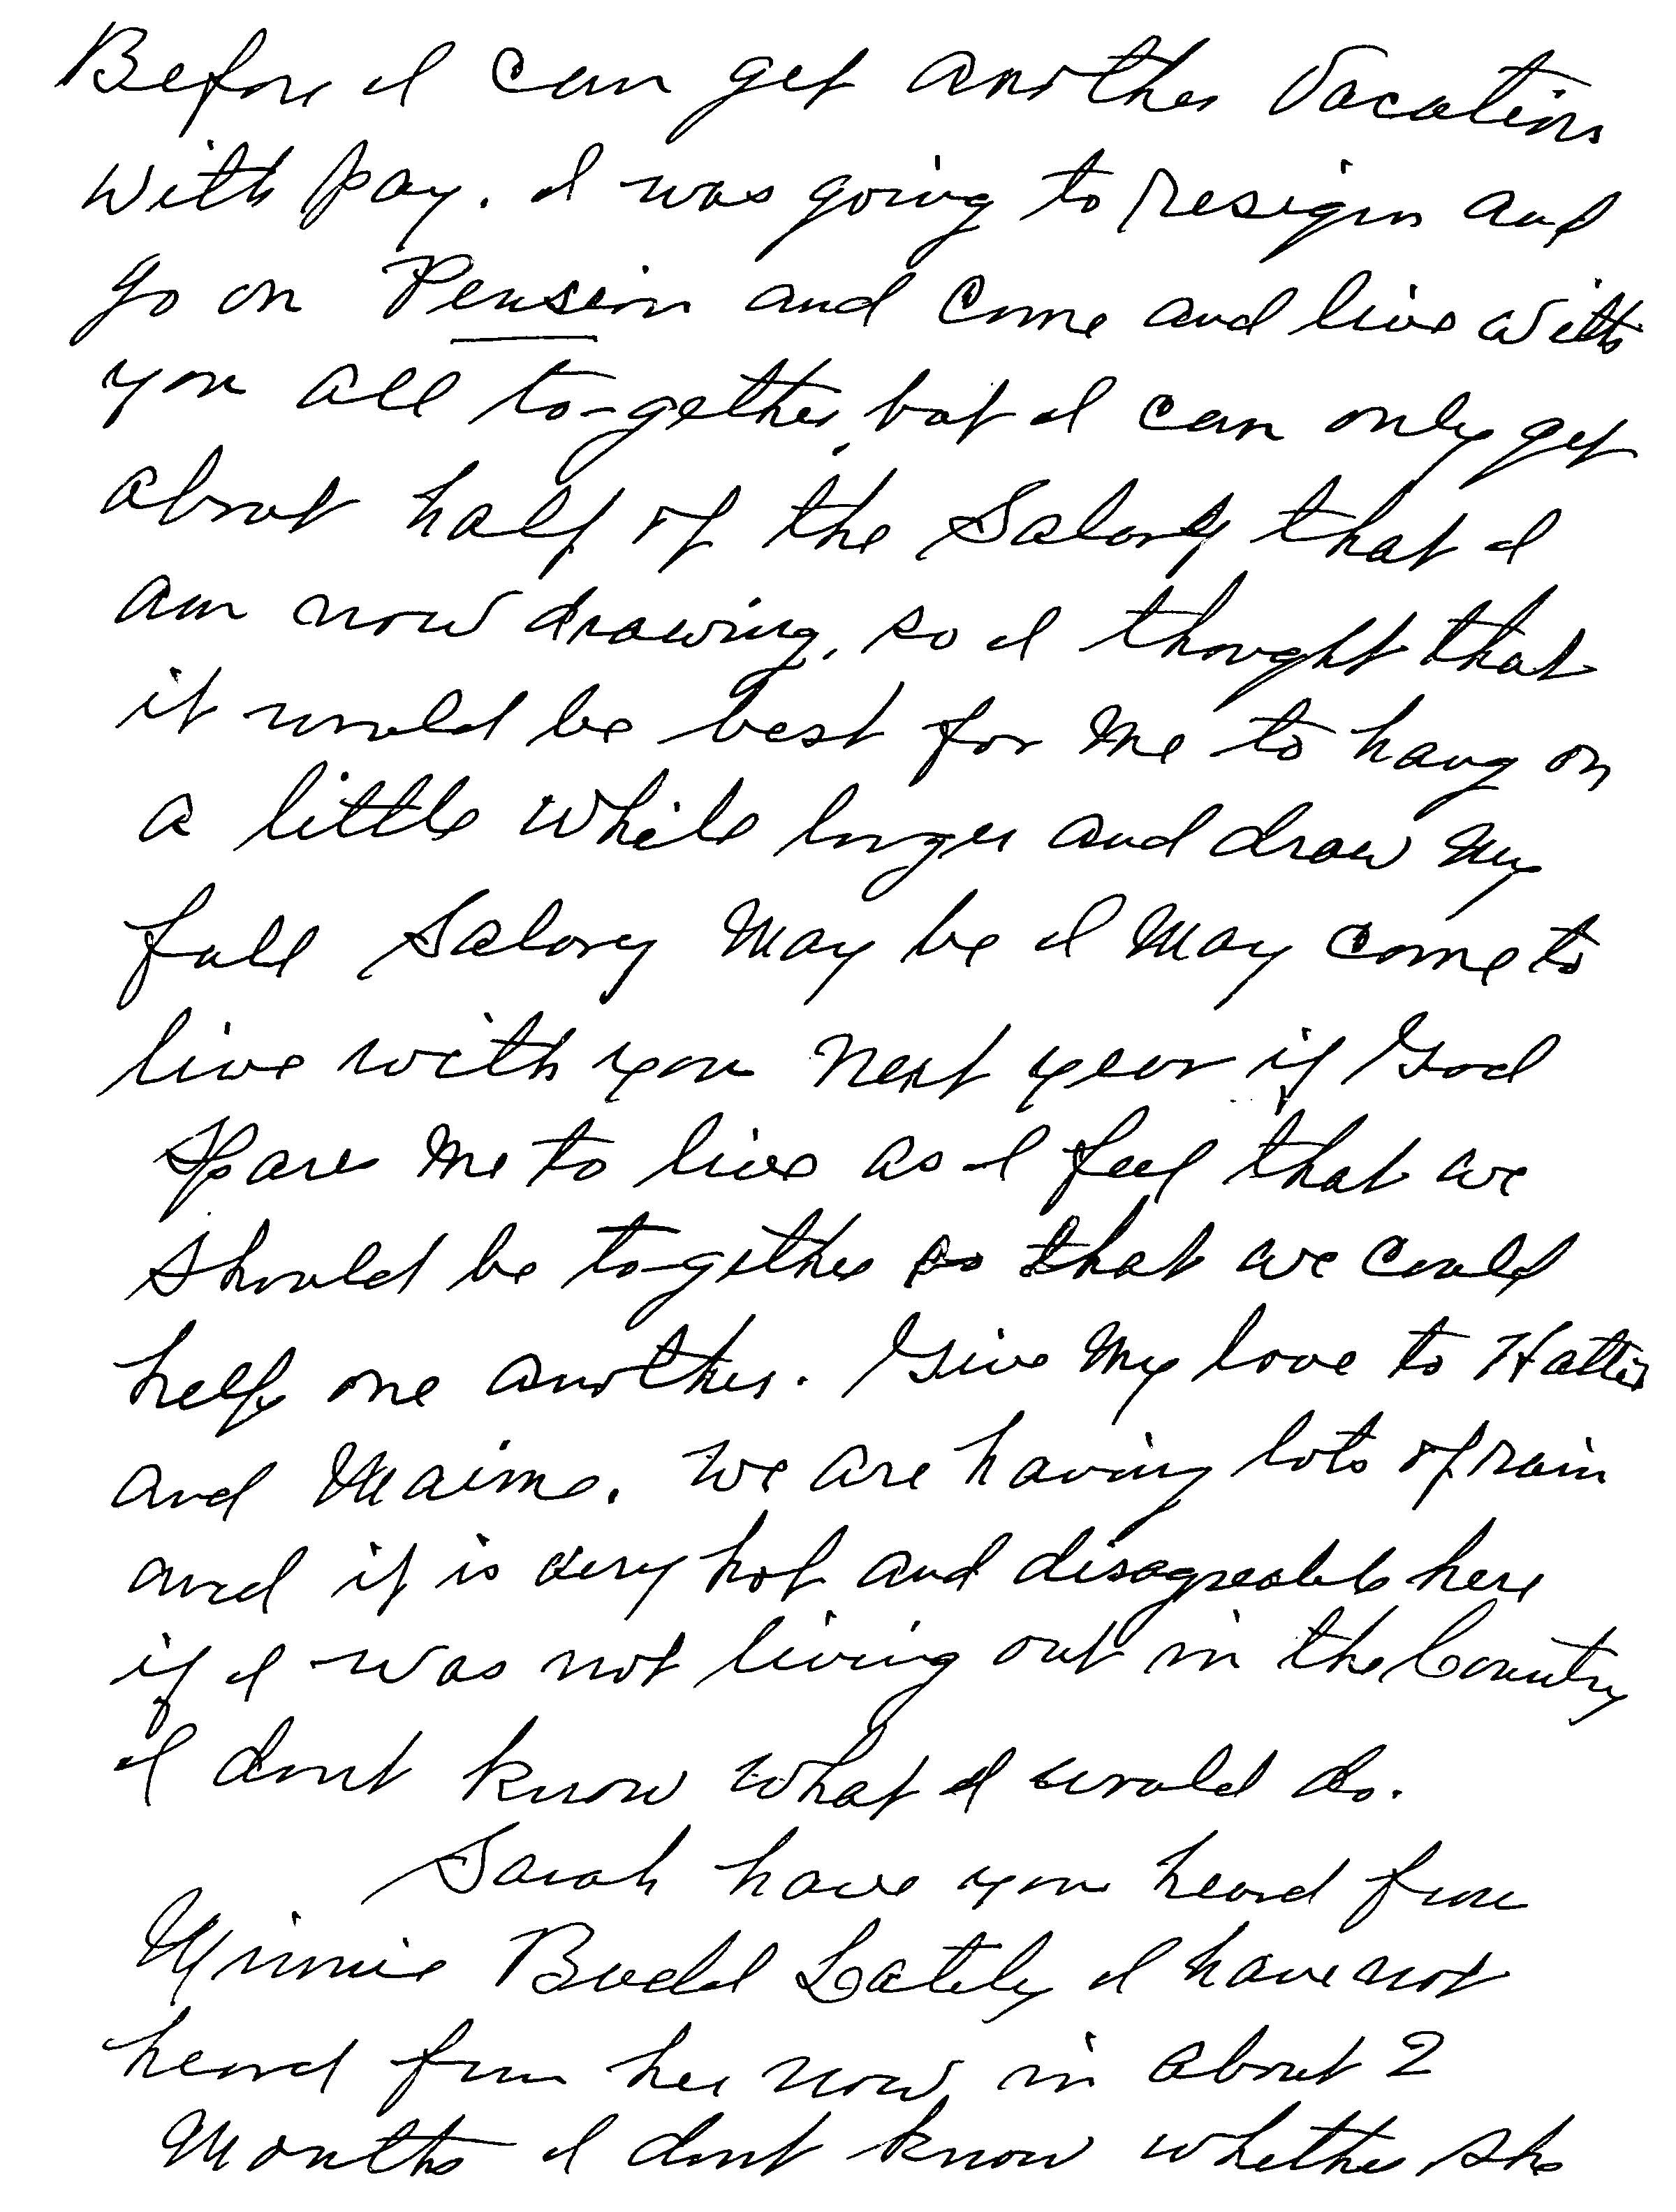 Before I can get another Vacation
with pay. I was going to resign and
go on Pension and come and live with
you all to-gether, but I can only get
about half of the Salary that I
am now drawing, so I thought that
it would be best for me to hang on
a little while longer and draw my
full Salary May be I may come to
live with you next year if God
Spare me to live as I feel that we
should be to-gether so that we could
help one another. Give my love to Hattie
and Maime. we are having lots of rain
and it is very hot and disagreeable here
if I was not living out in the Country
I dont know what I would do.
Sarah have you heard from
Minnie Budd Lately I have not
heard from her now in about 2
Months I dont know whether she